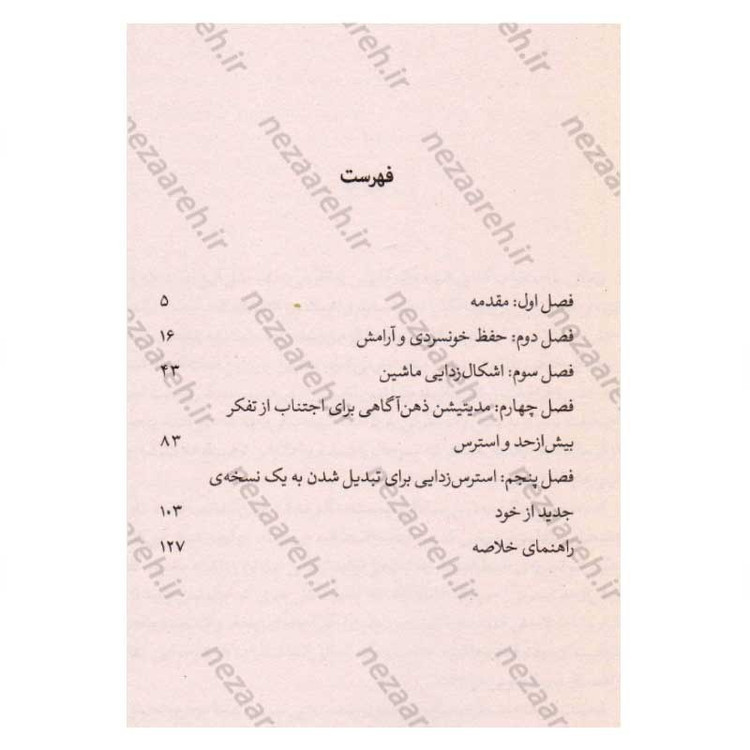 فهرست
فصل اول: مقدمه ۵
فصل دوم: حفظ خونسردی و آرامش ۱۶
فصل سوم: اشکال‌زدایی ماشین ۴۳
فصل چهارم: مدیتیشن ذهن‌آگاهی برای اجتناب از تفکر
بیش‌ازحد و استرس ۸۳
فصل پنجم: استرس‌زدایی برای تبدیل شدن به یک نسخه‌ی
جدید از خود ۱۰۳
راهنمای خلاصه ۱۲۷
nezaareh.ir